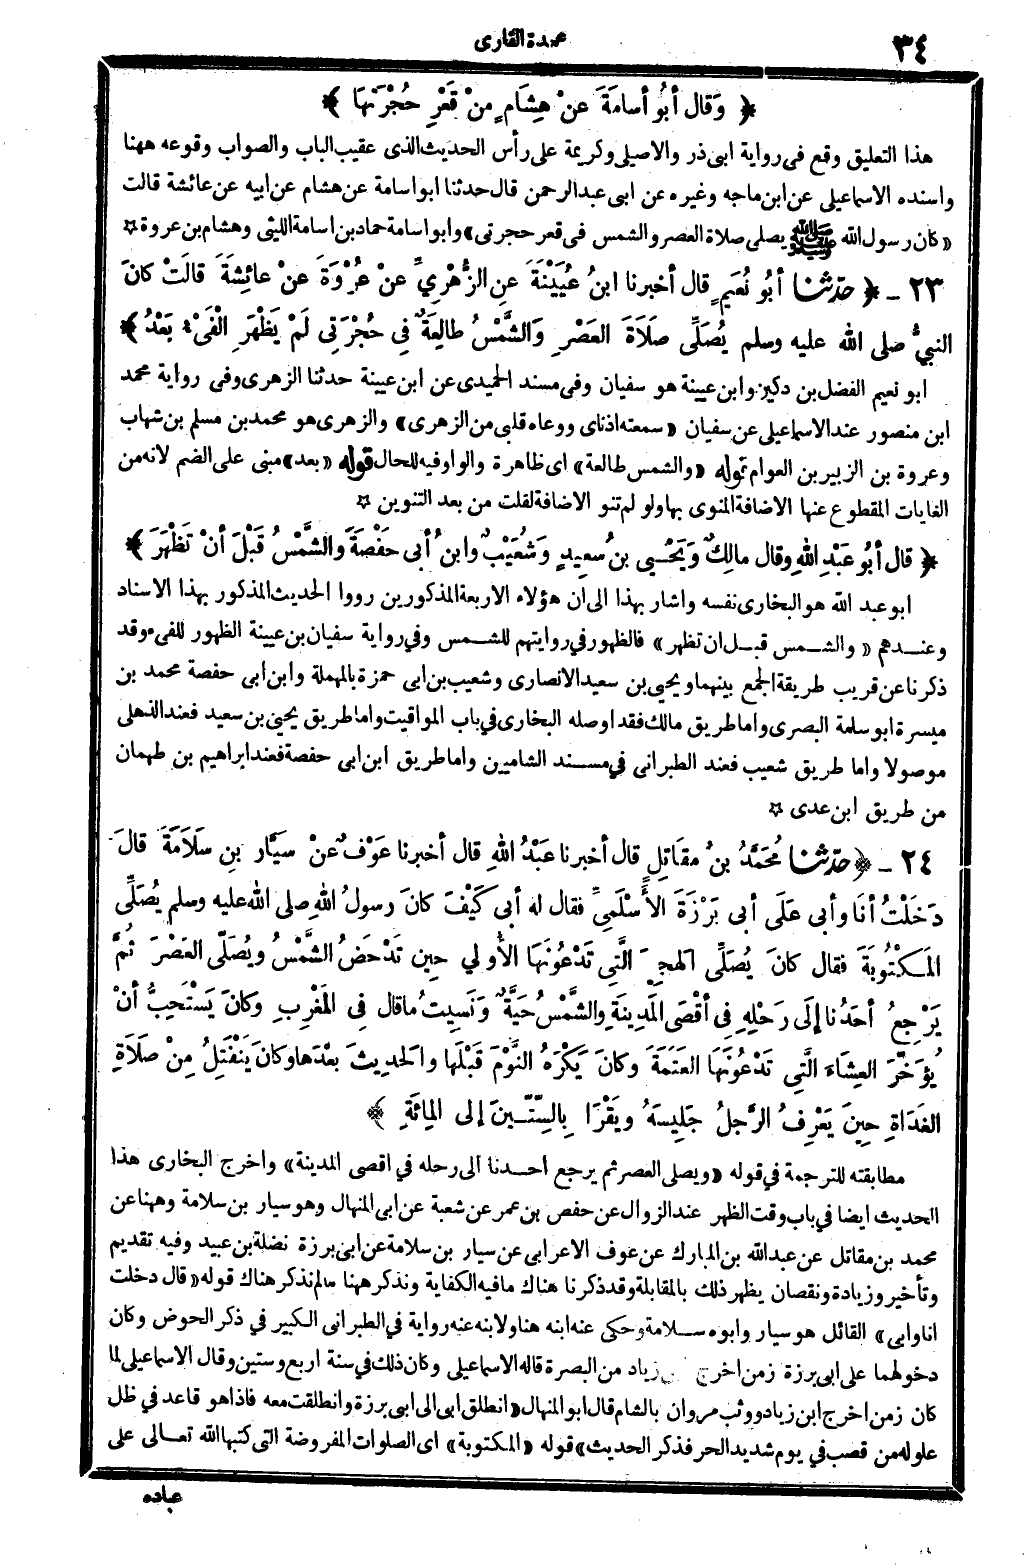 ٣٤
عمدة القارى
﴿ وَقال أبُو أسامَةَ عنْ هِشَامٍ مِنْ قَعْرِ حُجْرَتِهَا ﴾
هذا التعليق وقع فى رواية ابى ذر والاصيلى وكريمة على رأس الحديث الذى عقيب الباب والصواب وقوعه ههنا
واسنده الاسماعيلى عن ابن ماجه وغيره عن ابى عبد الرحمن قال حدثنا ابو اسامة عن هشام عن ابيه عن عائشة قالت
« كان رسول الله ﷺ يصلى صلاة العصر والشمس فى قعر حجرتى » وابو اسامة حماد بن اسامة الليثى وهشام بن عروة ☆
٢٣ ـ ﴿ حدّثنا أبُو نُعَيمٍ قال أخبرنا ابنُ عُيَيْنَةَ عنِ الزُّهْرِيِّ عنْ عُرْوَةَ عنْ عائِشَةَ قالَتْ كانَ
النبيُّ صلى الله عليه وسلم يُصَلِّى صَلَاةَ العَصْرِ وَالشَّمْسُ طالِعَةٌ فِي حُجْرَتِى لَمْ يَظْهَرِ الْفَىْءُ بَعْدُ ﴾
ابو نعيم الفضل بن دكين وابن عيينة هو سفيان وفى مسند الحميدى عن ابن عيينة حدثنا الزهرى وفى رواية محمد
ابن منصور عند الاسماعيلى عن سفيان « سمعته اذناى ووعاه قلبى من الزهرى » والزهرى هو محمد بن مسلم بن شهاب
وعروة بن الزبير بن العوام قوله « والشمس طالعة » اى ظاهرة والواو فيه للحال قوله « بعد » مبنى على الضم لانه من
الغايات المقطوع عنها الاضافة المنوى بها ولو لم تنو الاضافة لقلت من بعد التنوين ☆
﴿ قال أبُو عَبْدِ اللهِ وقال مالِكٌ وَيَحْيى بنُ سعِيدٍ وَشُعَيْبٌ وابنُ أبى حَفْصَةَ والشَّمْسُ قَبْلَ أنْ تَظْهَرَ ﴾
ابو عبد الله هو البخارى نفسه واشار بهذا الى ان هؤلاء الاربعة المذكورين رووا الحديث المذكور بهذا الاسناد
وعندهم « والشمس قبل ان تظهر » فالظهور فى روايتهم للشمس وفى رواية سفيان بن عيينة الظهور للفىء وقد
ذكرنا عن قريب طريقة الجمع بينهما ويحيى بن سعيد الانصارى وشعيب بن ابى حمزة بالمهملة وابن ابى حفصة محمد بن
ميسرة ابو سلمة البصرى واما طريق مالك فقد اوصله البخارى فى باب المواقيت واما طريق يحيى بن سعيد فعند الذهلى
موصولا واما طريق شعيب فعند الطبرانى فى مسند الشاميين واما طريق ابن ابى حفصة فعند ابراهيم بن طهمان
من طريق ابن عدى ☆
٢٤ ـ ﴿ حدّثنا مُحَمَّدُ بنُ مقَاتِلٍ قال أخبرنا عَبْدُ اللهِ قال أخبرنا عَوْفٌ عنْ سَيَّار بنِ سَلَامَةَ قالَ
دَخَلْتُ أنَا وأبى عَلَى أبى بَرْزَةَ الأسْلَمِىِّ فقال له أبى كَيْفَ كانَ رسولُ اللهِ صلى الله عليه وسلم يُصَلِّى
المَكْتُوبَةَ فقال كانَ يُصَلِّى الهجِيرَ الَّتِى تَدْعُونَهَا الأولي حِينَ تَدْحَضُ الشَّمْسُ ويُصَلّى العَصْرَ ثُمَّ
يَرْجِعُ أحَدُنا إلَى رَحْلِهِ فِى أقْصَى المَدِينَةِ والشَّمْسُ حَيَّةٌ وَنَسِيتُ ما قال فِى المَغْرِبِ وكانَ يَسْتَحِبُّ أنْ
يُؤَخِّرَ العِشَاءَ الَّتِى تَدْعُونَهَا العَتَمَةَ وكانَ يَكْرَهُ النَّوْمَ قَبْلَها والحَدِيثَ بعْدَها وكانَ يَنْفَتِلُ مِنْ صَلَاةِ
الغَدَاةِ حِينَ يَعْرِفُ الرَّجلُ جَلِيسَهُ ويَقْرَا بِالسِّتِّينَ إلى المِائَةِ ﴾
مطابقته للترجمة فى قوله « ويصلى العصر ثم يرجع احدنا الى رحله فى اقصى المدينة » واخرج البخارى هذا
الحديث ايضا فى باب وقت الظهر عند الزوال عن حفص بن عمر عن شعبة عن ابى المنهال وهو سيار بن سلامة وههنا عن
محمد بن مقاتل عن عبد الله بن المبارك عن عوف الاعرابى عن سيار بن سلامة عن ابى برزة نضلة بن عبيد وفيه تقديم
وتأخير وزيادة ونقصان يظهر ذلك بالمقابلة وقد ذكرنا هناك ما فيه الكفاية ونذكر ههنا ما لم نذكر هناك قوله « قال دخلت
انا وابى » القائل هو سيار وابوه سلامة وحكى عنه ابنه هنا ولابنه عنه رواية فى الطبرانى الكبير فى ذكر الحوض وكان
دخولهما على ابى برزة زمن اخرج ابن زياد من البصرة قاله الاسماعيلى وكان ذلك فى سنة اربع وستين وقال الاسماعيلى لما
كان زمن اخرج ابن زياد ووثب مروان بالشام قال ابو المنهال « انطلق ابى الى ابى برزة وانطلقت معه فاذا هو قاعد فى ظل
علو له من قصب فى يوم شديد الحر فذكر الحديث » قوله « المكتوبة » اى الصلوات المفروضة التى كتبها الله تعالى على
عباده